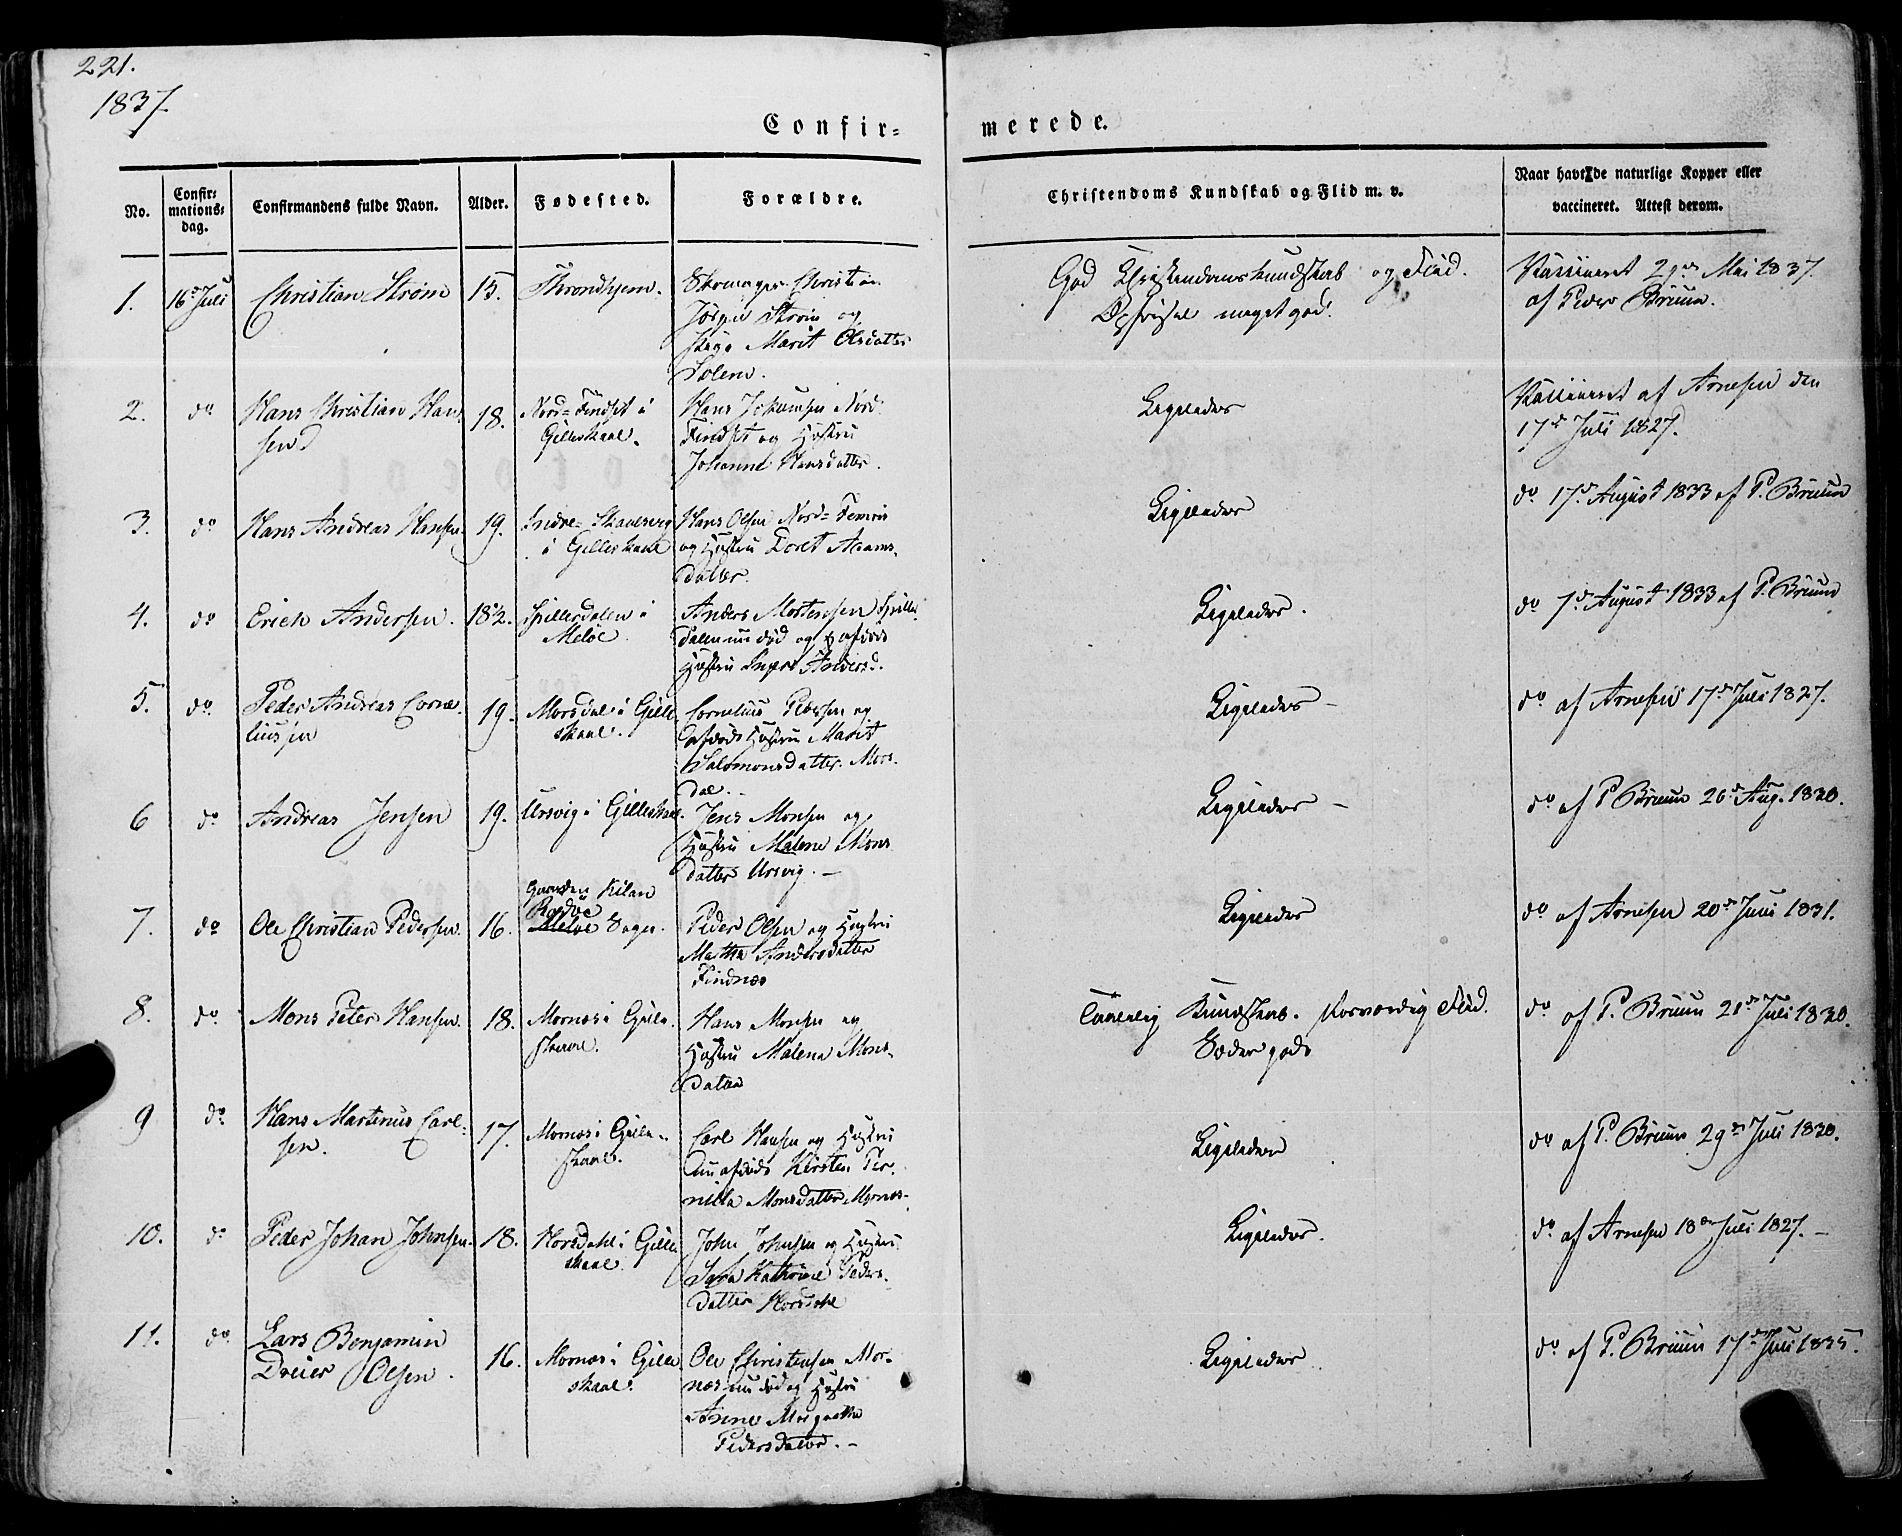 221.
1837
Confir-
merede.
No.
Confir-
mations-
dag.
Confirmandens fulde Navn.
Alder.
Fødested.
Forældre.
Christendoms Kundskab og Flid m. v.
Naar havt de naturlige Kopper eller
vaccineret. Attest derom.
1.
16de Juli
Christian Strøm
15.
Throndhjem.
Skomager Christian
Jørgen Strøm og
Marit Olsdatter
Solem.
God Christendomskundskab og Flid.
Opførsel meget god.
Vaccineret 29de Mai 1837.
af Peder Bruun.
2.
do
Hans Christian Han
sen
18.
Nord-Findset i
Gilleskaal.
Hans Nord
Findset og Hustru
Johanne Hansdatter.
Ligeledes
Vaccineret af Arnesen den
17de Juli 1827.
3.
do
Hans Andreas Hansen
19.
Indre-
i Gilleskaal
Hans Olsen Nord-
og Hustru Doret Adams-
datter.
Ligeledes
do 17de August 1833 af P. Bruun
4.
do
Erich Andersen.
18½.
Spilderdalen i
Meløe
Anders Mortensen Spilder
dalen nu død og
Hustru Anders d.
Ligeledes.
do 7de August 1833 af P. Bruun
5.
do
Peder Andreas Corne-
liussen
19.
Morsdal i Gille
skaal.
Cornelius Pedersen og
afdøde Hustru Marit
Salomonsdatter Mors-
dal.
Ligeledes -
do af Arnesen 17de Juli 1827.
6
do
Andreas Jensen
19.
Ursvig i Gilleskaal.
Jens Monsen og
Hustru Malene Mons
datter Ursvig. -
Ligeledes -
do af P Bruun 26de Aug. 1820.
7.
do
Ole Christian Pedersen.
16.
Gaarden Kilan
Rødøe
Meløe Sogn.
Peder Olsen og Hustru
Martha Andersdatter
Findnæs
Ligeledes
do af Arnesen 20de Juni 1831.
8.
do
Mons Peter Hansen.
18.
Mornæs i Gille-
skaal.
Hans Monsen og
Hustru Malena Mons-
datter
Taalelig Kundskab. Flid.
Sæder gode
do af P. Bruun 21de Juli 1820.
9
do
Hans Martinus Carl-
sen.
17.
Mornæs i Gille-
skaal.
Carl Hansen og Hustru
nu afdøde Kirsten Per-
nilla Monsdatter Mornæs.
Ligeledes
do af P. Bruun 29de Juli 1820.
10.
do
Peder Johan Johnsen.
18.
Horsdahl i Gille
skaal.
John Johnsen og Hustru
Sara Kathrine Peders-
datter Horsdahl
Ligeledes.
do af Arnesen 18de Juli 1827. -
11.
do
Lars Benjamin
Dreier Olsen.
16.
Mornæs i Gille
skaal.
Ole Christensen Mor-
næs nu død og Hustru
Anne Margrethe
Pedersdatter. -
Ligeledes
do af P. Bruun 17de Juli 1835.